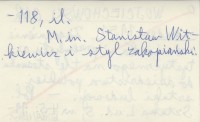 -118, il.
M.in. Stanisław Wit-
kiewicz i styl zakopiański.